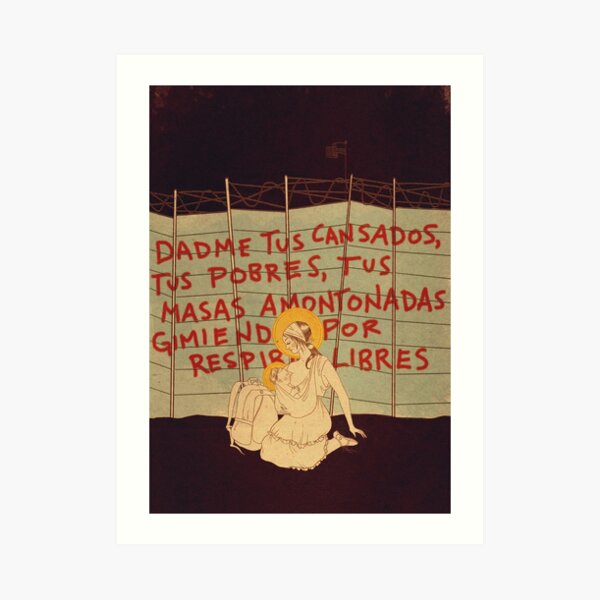 DADME TUS CANSADOS,
TUS POBRES, TUS
MASAS AMONTONADAS
GIMIEND POR
RESPIR LIBRES